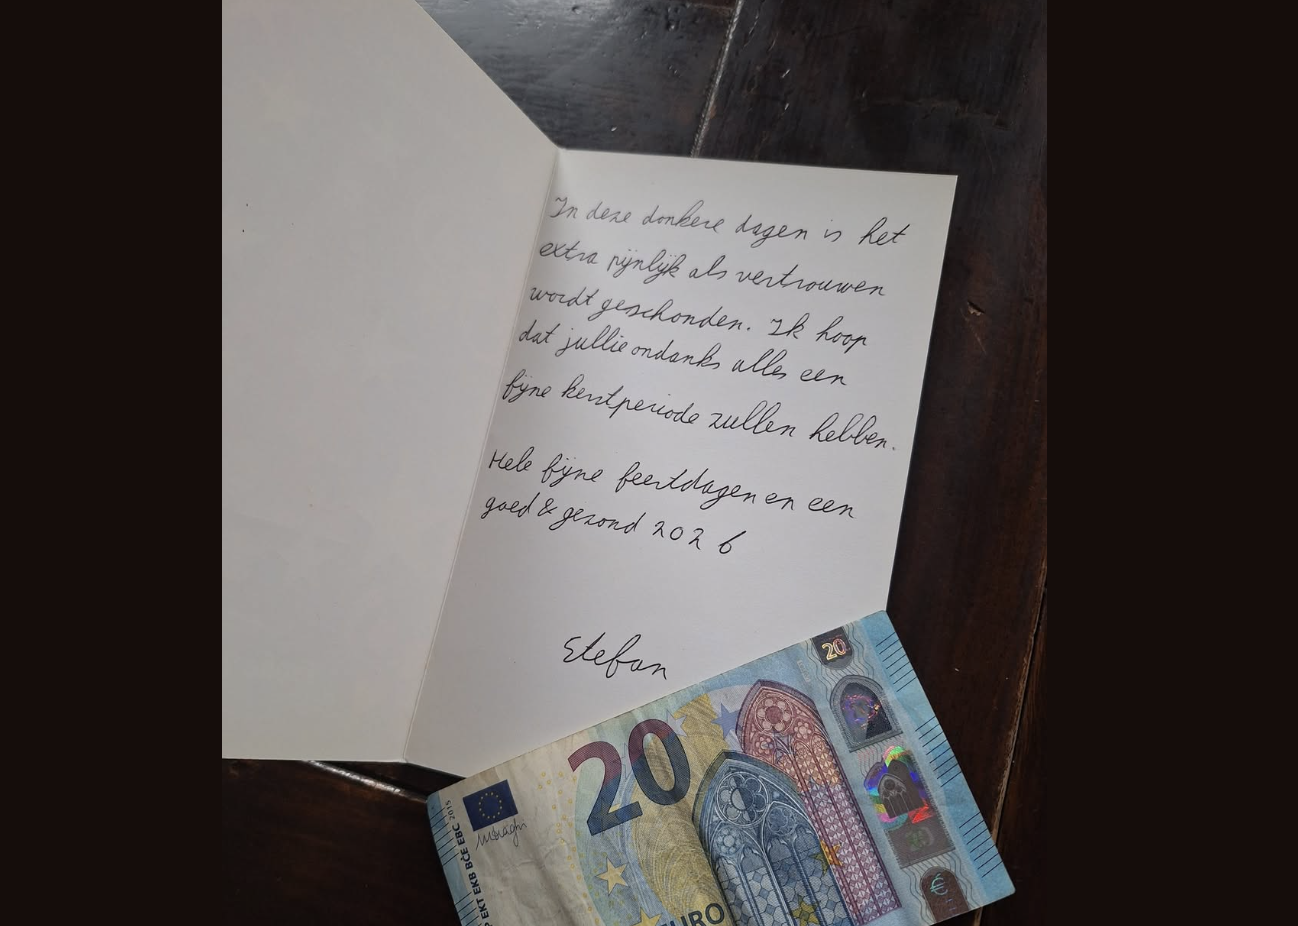 In deze donkere dagen is het
extra pijnlijk als vertrouwen
wordt geschonden. Ik hoop
dat jullie ondanks alles een
fijne kerstperiode zullen hebben.
Hele fijne feestdagen en een
goed & gezond 2026
Stefan
20
20
EKT EKB BCE EBC 2015
MDraghi
EURO
€